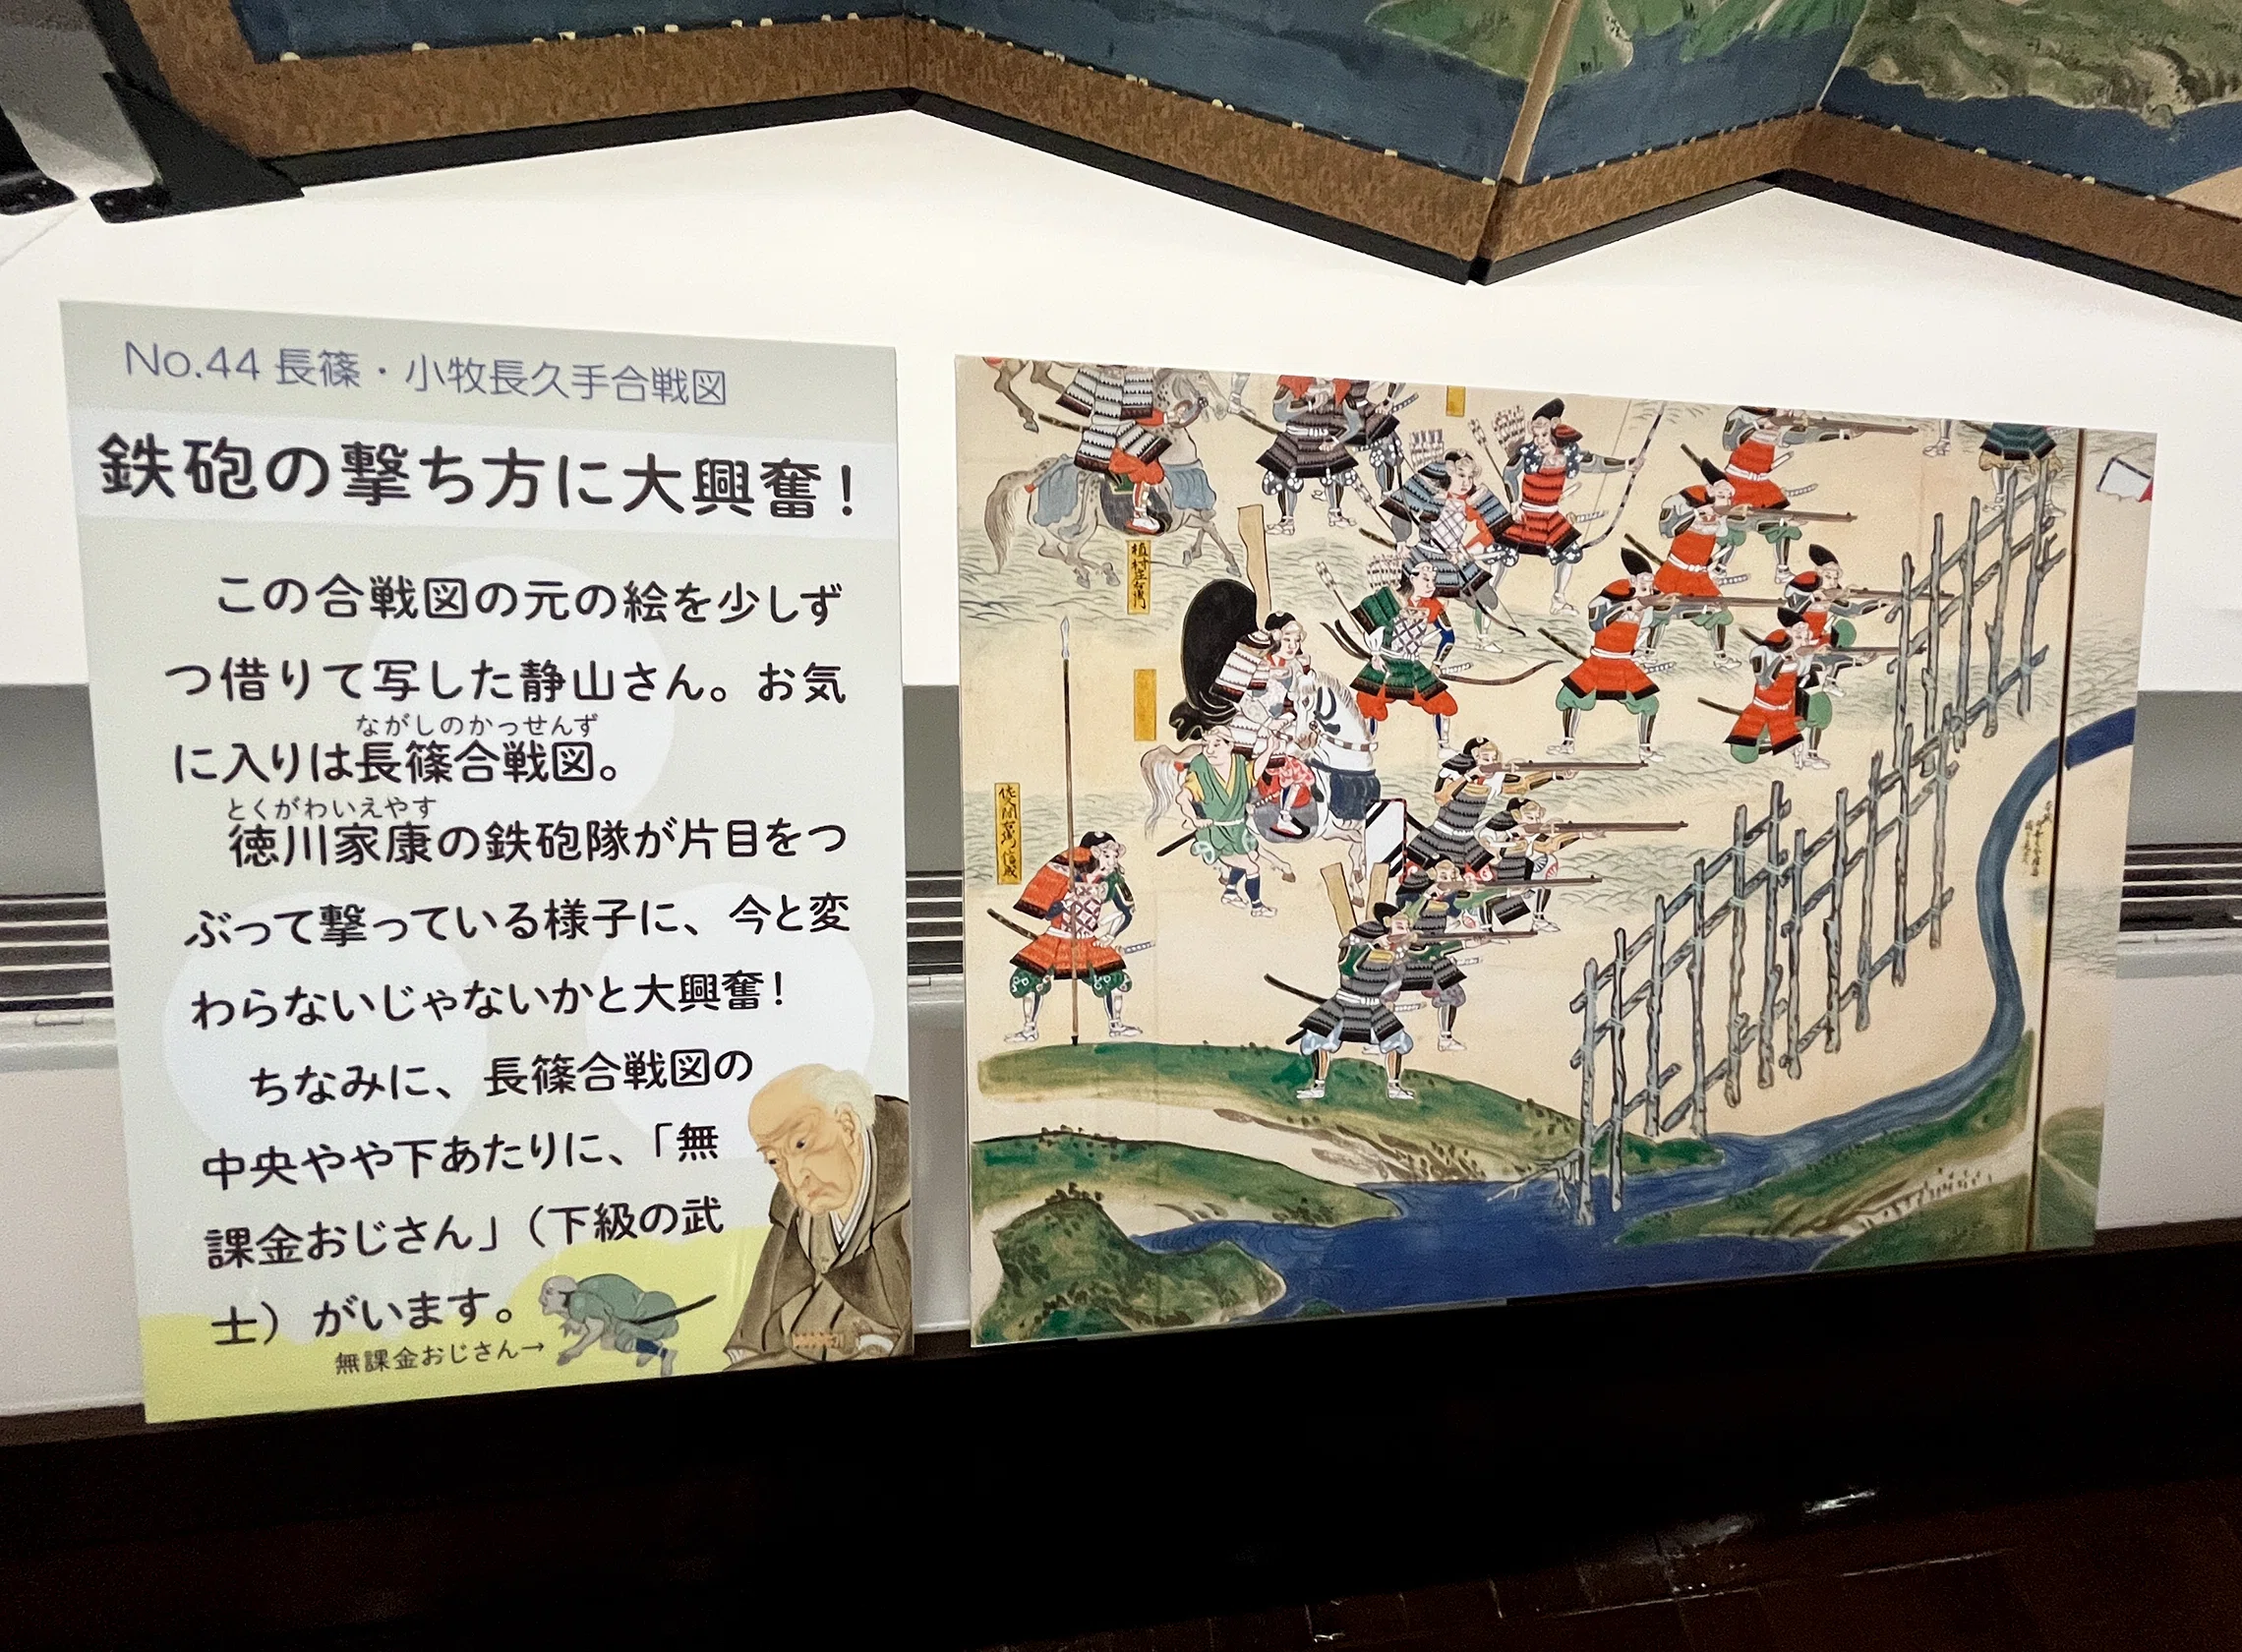 No.44 長篠・小牧長久手合戦図
鉄砲の撃ち方に大興奮！
この合戦図の元の絵を少しず
つ借りて写した静山さん。お気
ながしのかっせんず
に入りは長篠合戦図。
とくがわいえやす
徳川家康の鉄砲隊が片目をつ
ぶって撃っている様子に、今と変
わらないじゃないかと大興奮！
ちなみに、長篠合戦図の
中央やや下あたりに、「無
課金おじさん」（下級の武
士）がいます。
無課金おじさん→